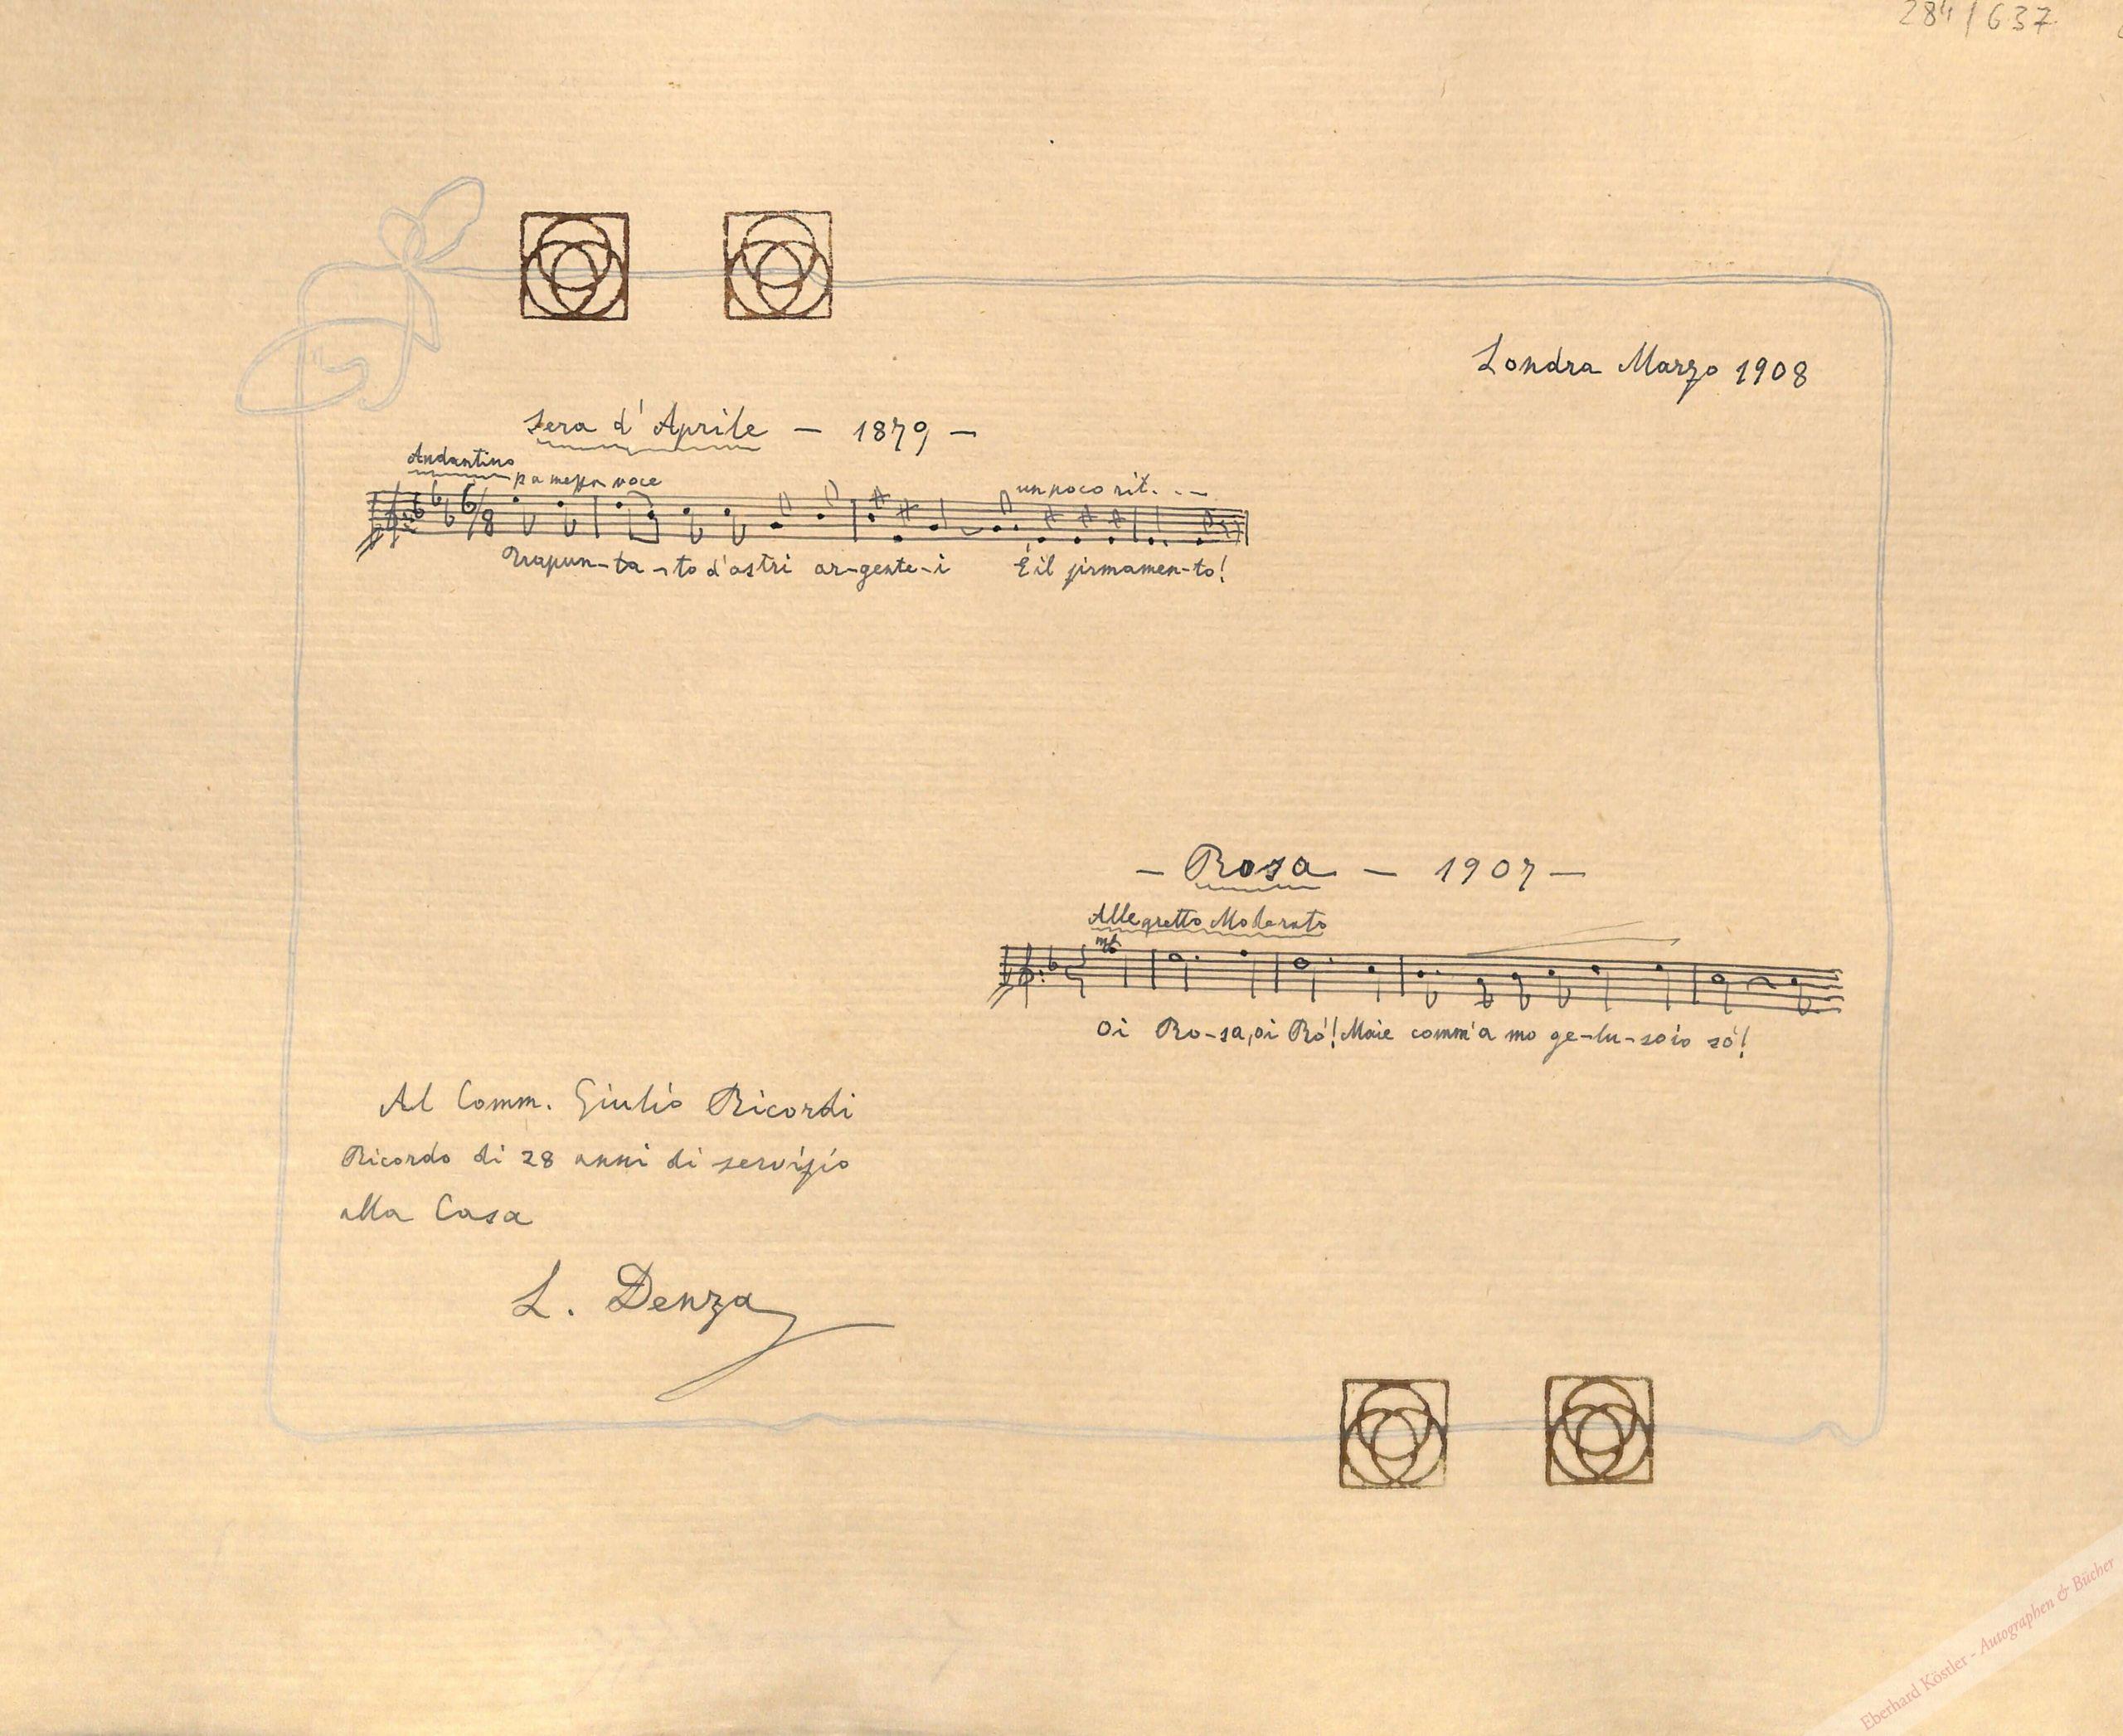 284/637
Londra Marzo 1908
Sera d'Aprile — 1879 —
Andantino
a mezza voce
6/8
un poco rit. - -
Trapun-ta-to d'astri ar-gente-i È il firmamen-to!
— Rosa — 1907 —
Allegretto Moderato
mf
Oi Ro-sa, oi Ro'! Maie comm'a mo ge-lu-so io so'!
Al Comm. Giulio Ricordi
Ricordo di 28 anni di servizio
alla Casa
L. Denza
Eberhard Köstler - Autographen & Bücher